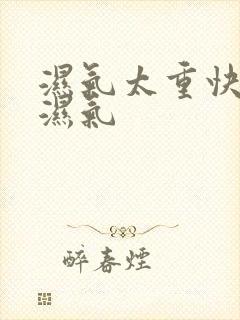 濕氣太重快
濕氣
醉春煙